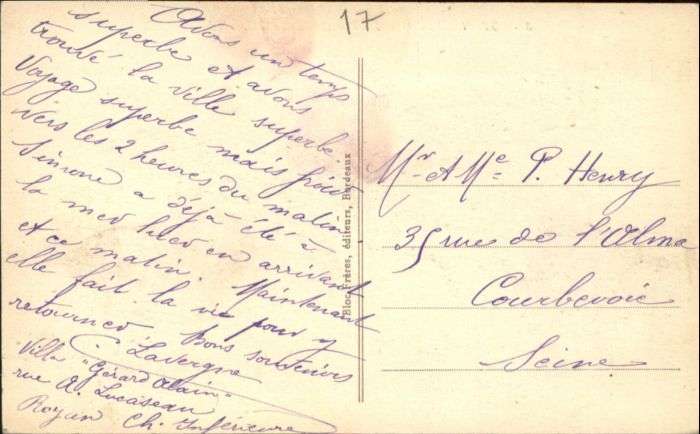 17
Avons un temps
superbe et avons
trouvé la ville superbe.
Voyage superbe mais froid
vers les 2 heures du matin.
Simone a déjà été à
la mer hier en arrivant
et ce matin. Maintenant
elle fait la vie pour y
retourner. Bons souvenirs
Lavergne
Villa "Gérard Alain"
rue A. Lucazeau
Royan Ch. Inférieure
Bloc Frères, éditeurs, Bordeaux
Mr et Me P. Henry
35 rue de l'Alma
Courbevoie
Seine